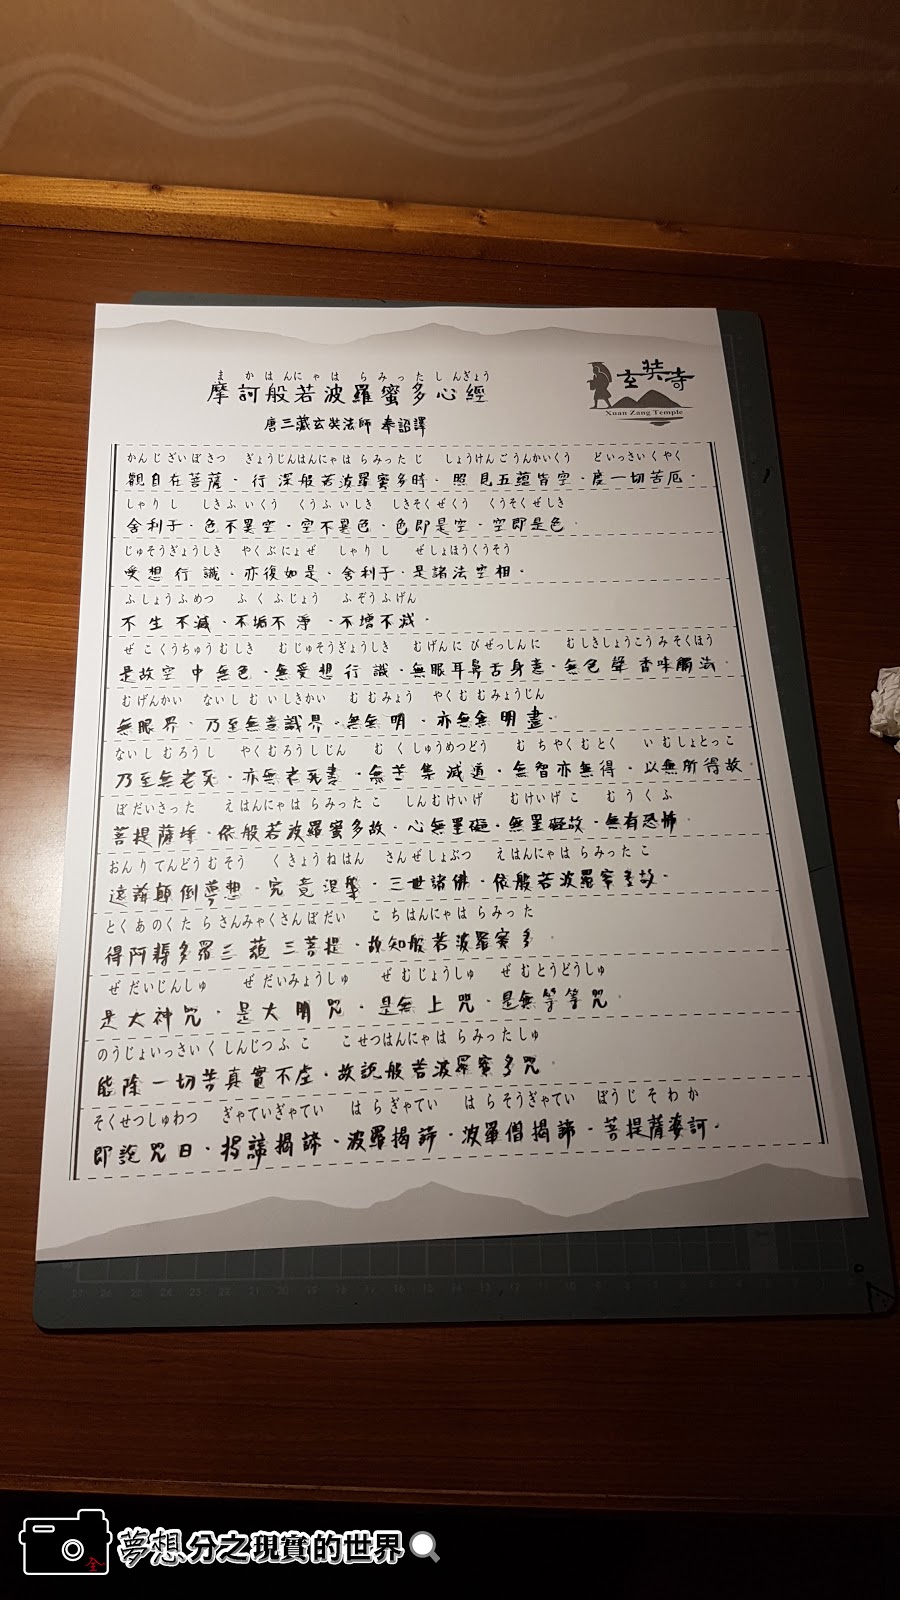 まかはんにゃはらみったしんぎょう
摩訶般若波羅蜜多心經
玄奘寺
Xuan Zang Temple
唐三藏玄奘法師 奉詔譯
かんじざいぼさつ ぎょうじんはんにゃはらみったじ しょうけんごうんかいくう どいっさいくやく
觀自在菩薩．行深般若波羅蜜多時．照見五蘊皆空．度一切苦厄．
しゃりし しきふいくう くうふいしき しきそくぜくう くうそくぜしき
舍利子．色不異空．空不異色．色即是空．空即是色．
じゅそうぎょうしき やくぶにょぜ しゃりし ぜしょほうくうそう
受想行識．亦復如是．舍利子．是諸法空相．
ふしょうふめつ ふくふじょう ふぞうふげん
不生不滅．不垢不淨．不增不減．
ぜこくうちゅうむしき むじゅそうぎょうしき むげんにびぜっしんに むしきしょうこうみそくほう
是故空中無色．無受想行識．無眼耳鼻舌身意．無色聲香味觸法．
むげんかい ないしむいしきかい むむみょう やくむむみょうじん
無眼界．乃至無意識界．無無明．亦無無明盡．
ないしむろうし やくむろうしじん むくしゅうめつどう むちやくむとく いむしょとっこ
乃至無老死．亦無老死盡．無苦集滅道．無智亦無得．以無所得故
ぼだいさった えはんにゃはらみったこ しんむけいげ むけいげこ むうくふ
菩提薩埵．依般若波羅蜜多故．心無罣礙．無罣礙故．無有恐怖．
おんりてんどうむそう くきょうねはん さんぜしょぶつ えはんにゃはらみったこ
遠離顛倒夢想．究竟涅槃．三世諸佛．依般若波羅蜜多故．
とくあのくたらさんみゃくさんぼだい こちはんにゃはらみった
得阿耨多羅三藐三菩提．故知般若波羅蜜多．
ぜだいじんしゅ ぜだいみょうしゅ ぜむじょうしゅ ぜむとうどうしゅ
是大神咒．是大明咒．是無上咒．是無等等咒．
のうじょいっさいくしんじつふこ こせつはんにゃはらみったしゅ
能除一切苦真實不虛．故說般若波羅蜜多咒．
そくせつしゅわつ ぎゃていぎゃてい はらぎゃてい はらそうぎゃてい ぼうじそわか
即說咒曰．揭諦揭諦．波羅揭諦．波羅僧揭諦．菩提薩婆訶．
夢想分之現實的世界